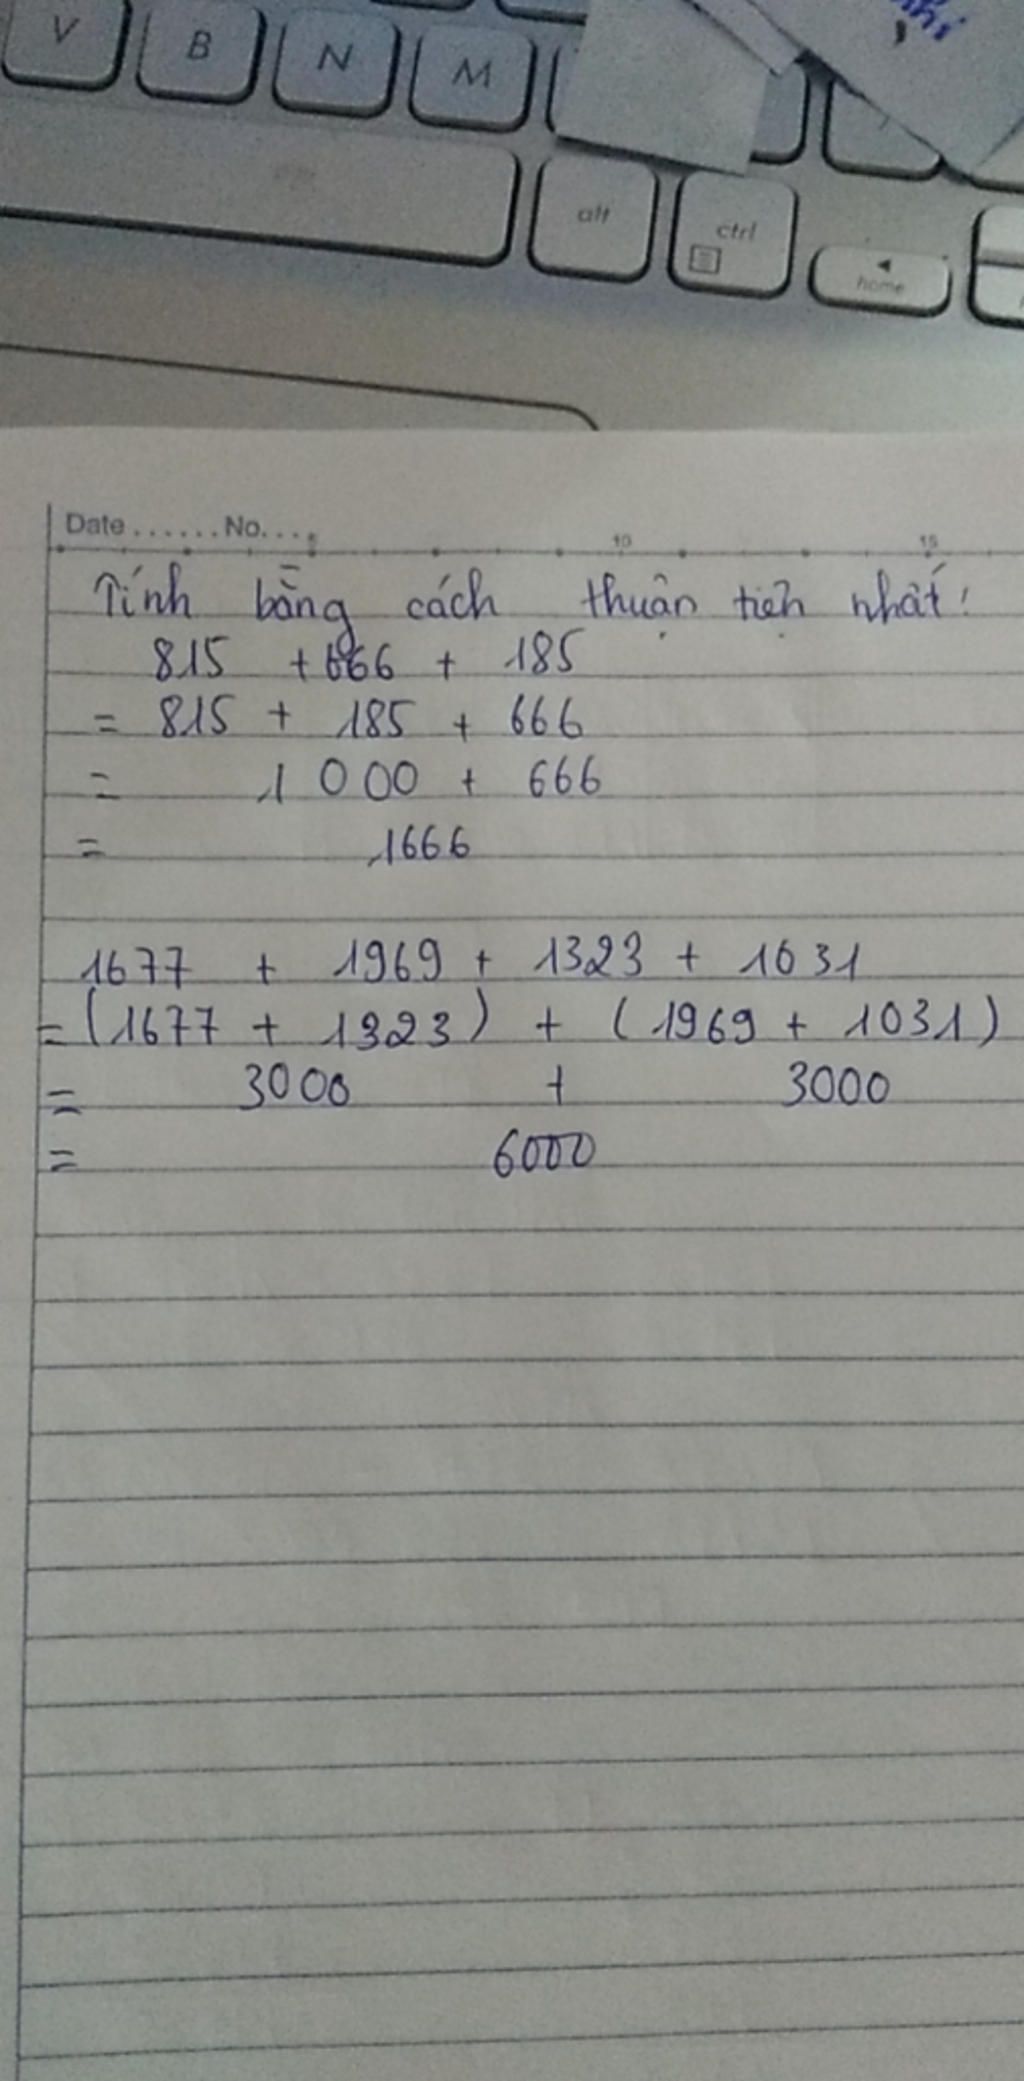 V B N M
alt ctrl
home
Date ...... No. ... 5 10 15
Tính bằng cách thuận tiện nhất:
815 + 666 + 185
= 815 + 185 + 666
= 1 000 + 666
= 1666
1677 + 1969 + 1323 + 1031
= (1677 + 1323) + (1969 + 1031)
= 3000 + 3000
= 6000